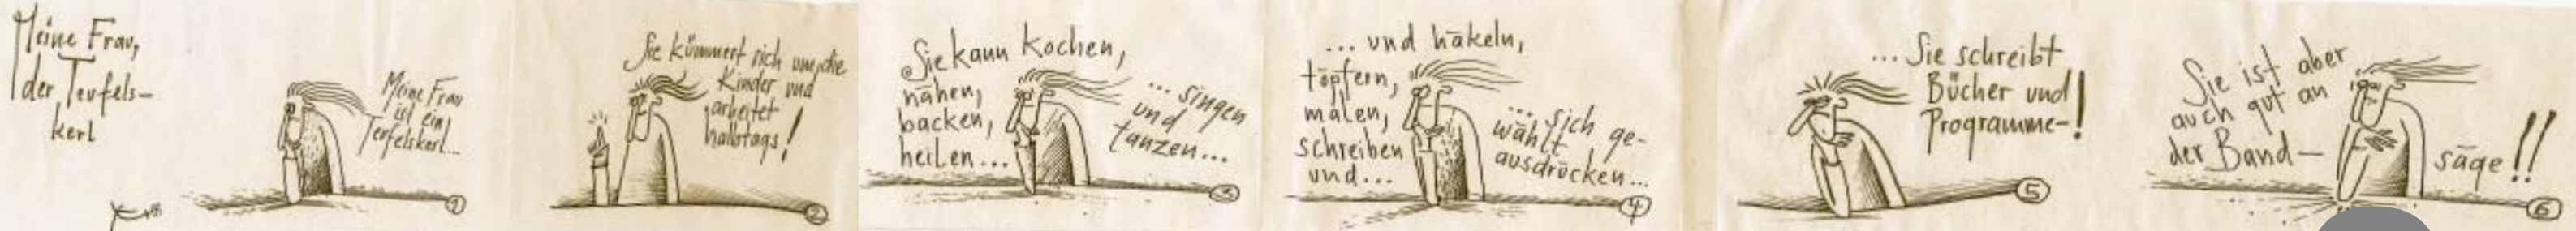 Meine Frau,
der Teufels-
kerl
Meine Frau
ist ein
Teufelskerl...
1
Sie kümmert sich um die
Kinder und
arbeitet
halbtags!
2
Sie kann kochen,
nähen,
backen,
heilen...
... singen
und
tanzen...
3
... und häkeln,
töpfern,
malen,
schreiben
und...
... sich ge-
wählt
ausdrücken...
4
... Sie schreibt
Bücher und
Programme-!
5
Sie ist aber
auch gut an
der Band-
säge!!
6